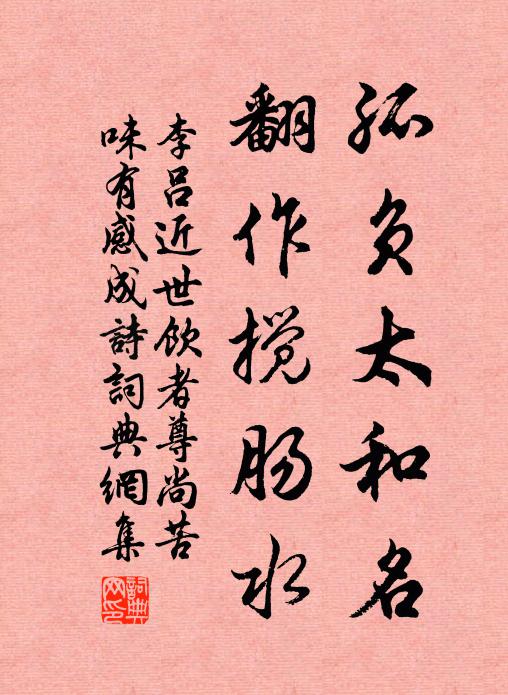 孤负太和名
翻作搅肠水
李吕近世饮者尊尚苦
味有感成詩詞典網集
詞典网印